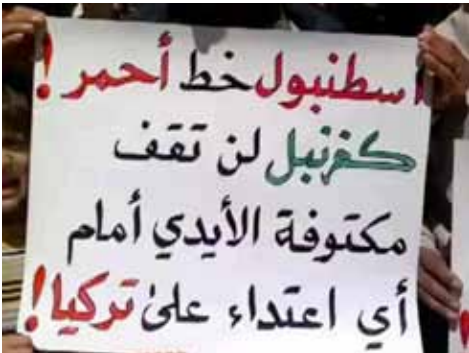 اسطنبول خط أحمر!
كفرنبل لن تقف
مكتوفة الأيدي أمام
أي اعتداء على تركيا!